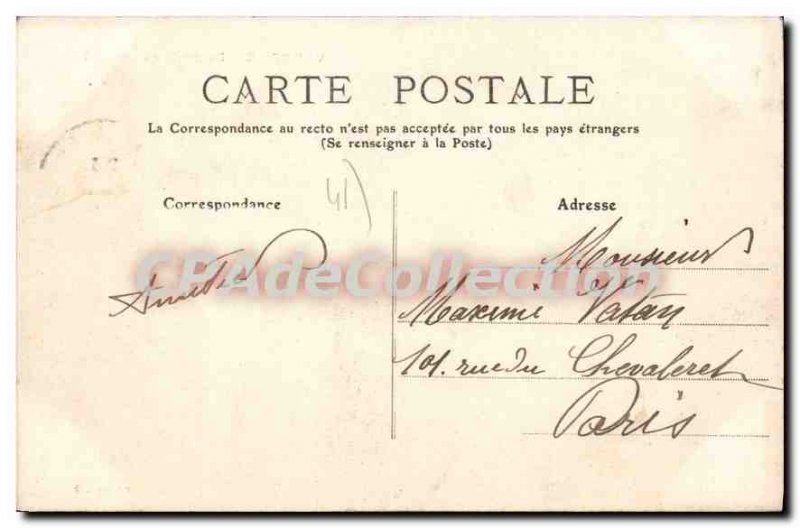 CARTE POSTALE
La Correspondance au recto n'est pas acceptée par tous les pays étrangers
(Se renseigner à la Poste)
41)
Correspondance
Adresse
CPAdeCollection
Monsieur
Maxime Vatan
101. rue du Chevaleret
Paris